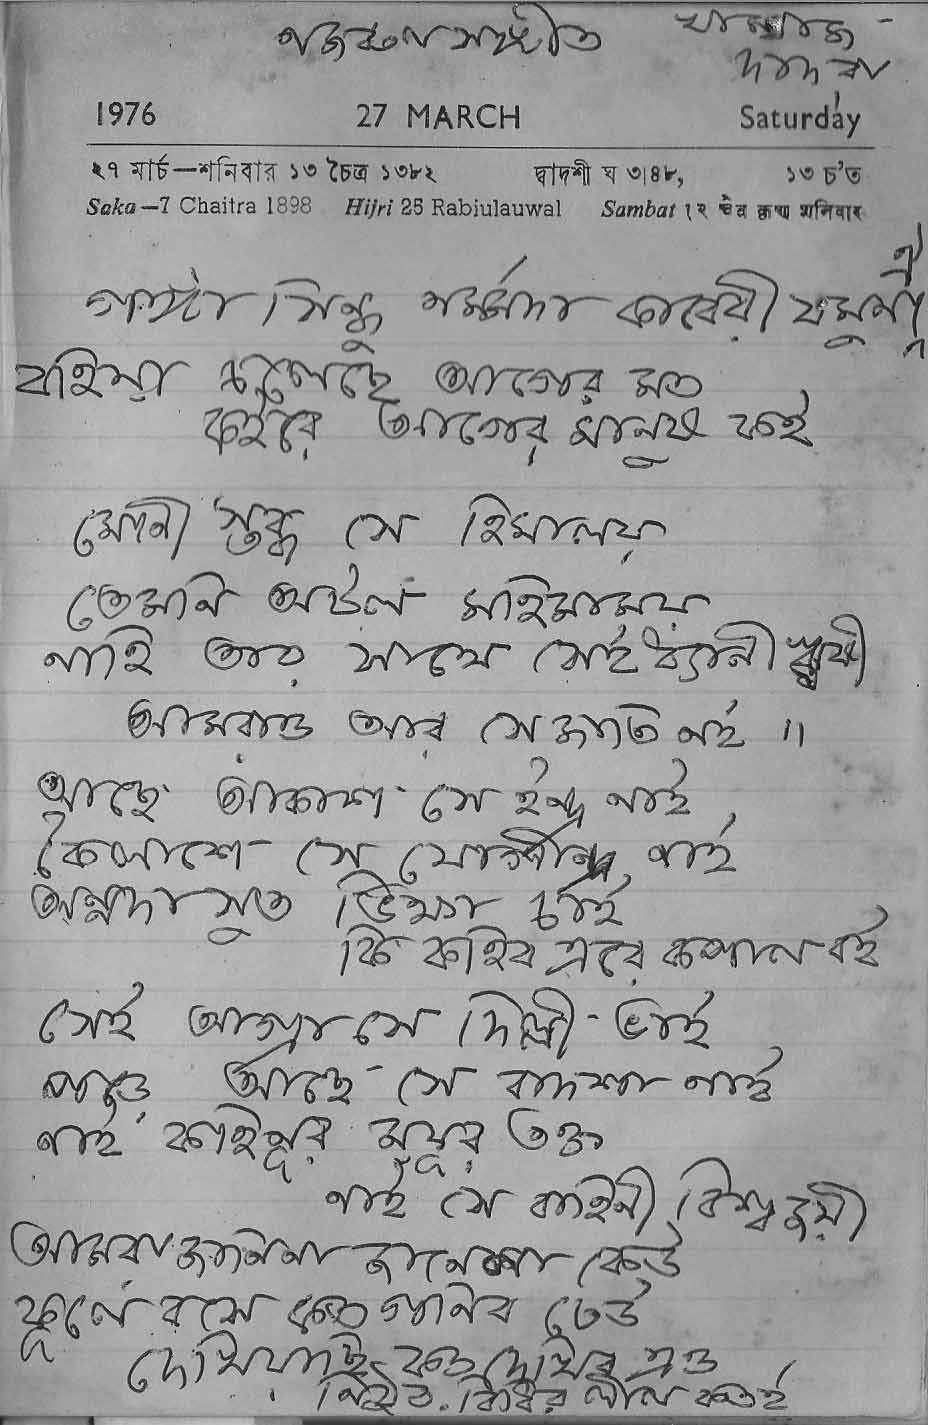 নজরুল সঙ্গীত খাম্বাজ -
দাদরা
1976 27 MARCH Saturday
২৭ মার্চ—শনিবার ১৩ চৈত্র ১৩৮২ দ্বাদশী ঘ ৩|৪৮, ১৩ চ'ত
Saka—7 Chaitra 1898 Hijri 25 Rabiulauwal Sambat १२ चैत्र कृष्ण शनिवार
গঙ্গা সিন্ধু নর্মদা কাবেরী যমুনা ঐ
বহিয়া চলেছে আগের মত
কইরে আগের মানুষ কই
মৌনী স্তব্ধ সে হিমালয়
তেমনি অটল মহিমাময়
নাহি তার সাথে সেই ধ্যানী ঋষী
আমরাও আর সে জাতি নই ॥
আছে আকাশ সে ইন্দ্র নাই
কৈলাশে সে যোগীন্দ্র নাই
অন্নদা সুত ভিক্ষা চাই
কি কহিব এরে কপাল বই
সেই আগ্রা সে দিল্লী ভাই
পড়ে আছে সে বাদশা নাই
নাই কোহিনূর ময়ূর তক্ত
নাই সে বাহিনী বিশ্বজয়ী
আমরা জানিনা জানেনা কেউ
কূলে বসে কত গনিব ঢেউ
দেখিয়াছি কত দেখিব এও
নিঠুর বিধির লীলা কতই